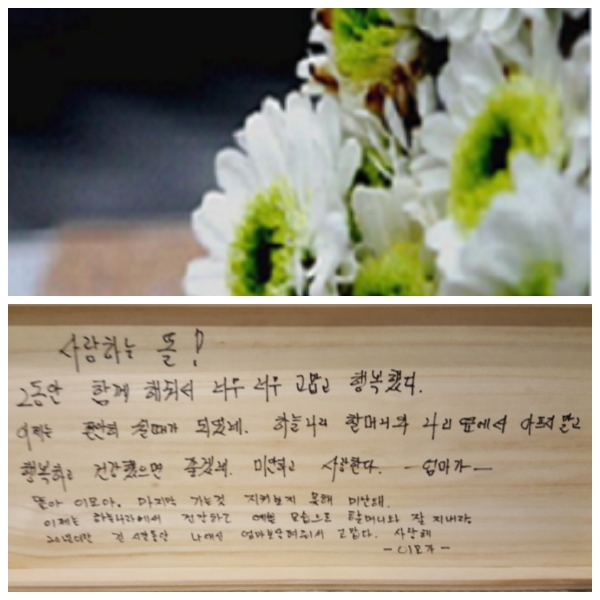 사랑하는 똘!
그동안 함께 해줘서 너무 너무 고맙고 행복했다.
이제는 편안히 쉴때가 되었네. 하늘나라 할머니와 나리 옆에서 아프지말고
행복하고 건강했으면 좋겠네. 미안하고 사랑한다. -엄마가-
똘아 이모야. 마지막 가는것 지켜보지 못해 미안해.
이제는 하늘나라에서 건강하고 예쁜 모습으로 할머니와 잘 지내라.
20년이란 긴 시간동안 나대신 엄마보살펴줘서 고맙다. 사랑해
-이모가-